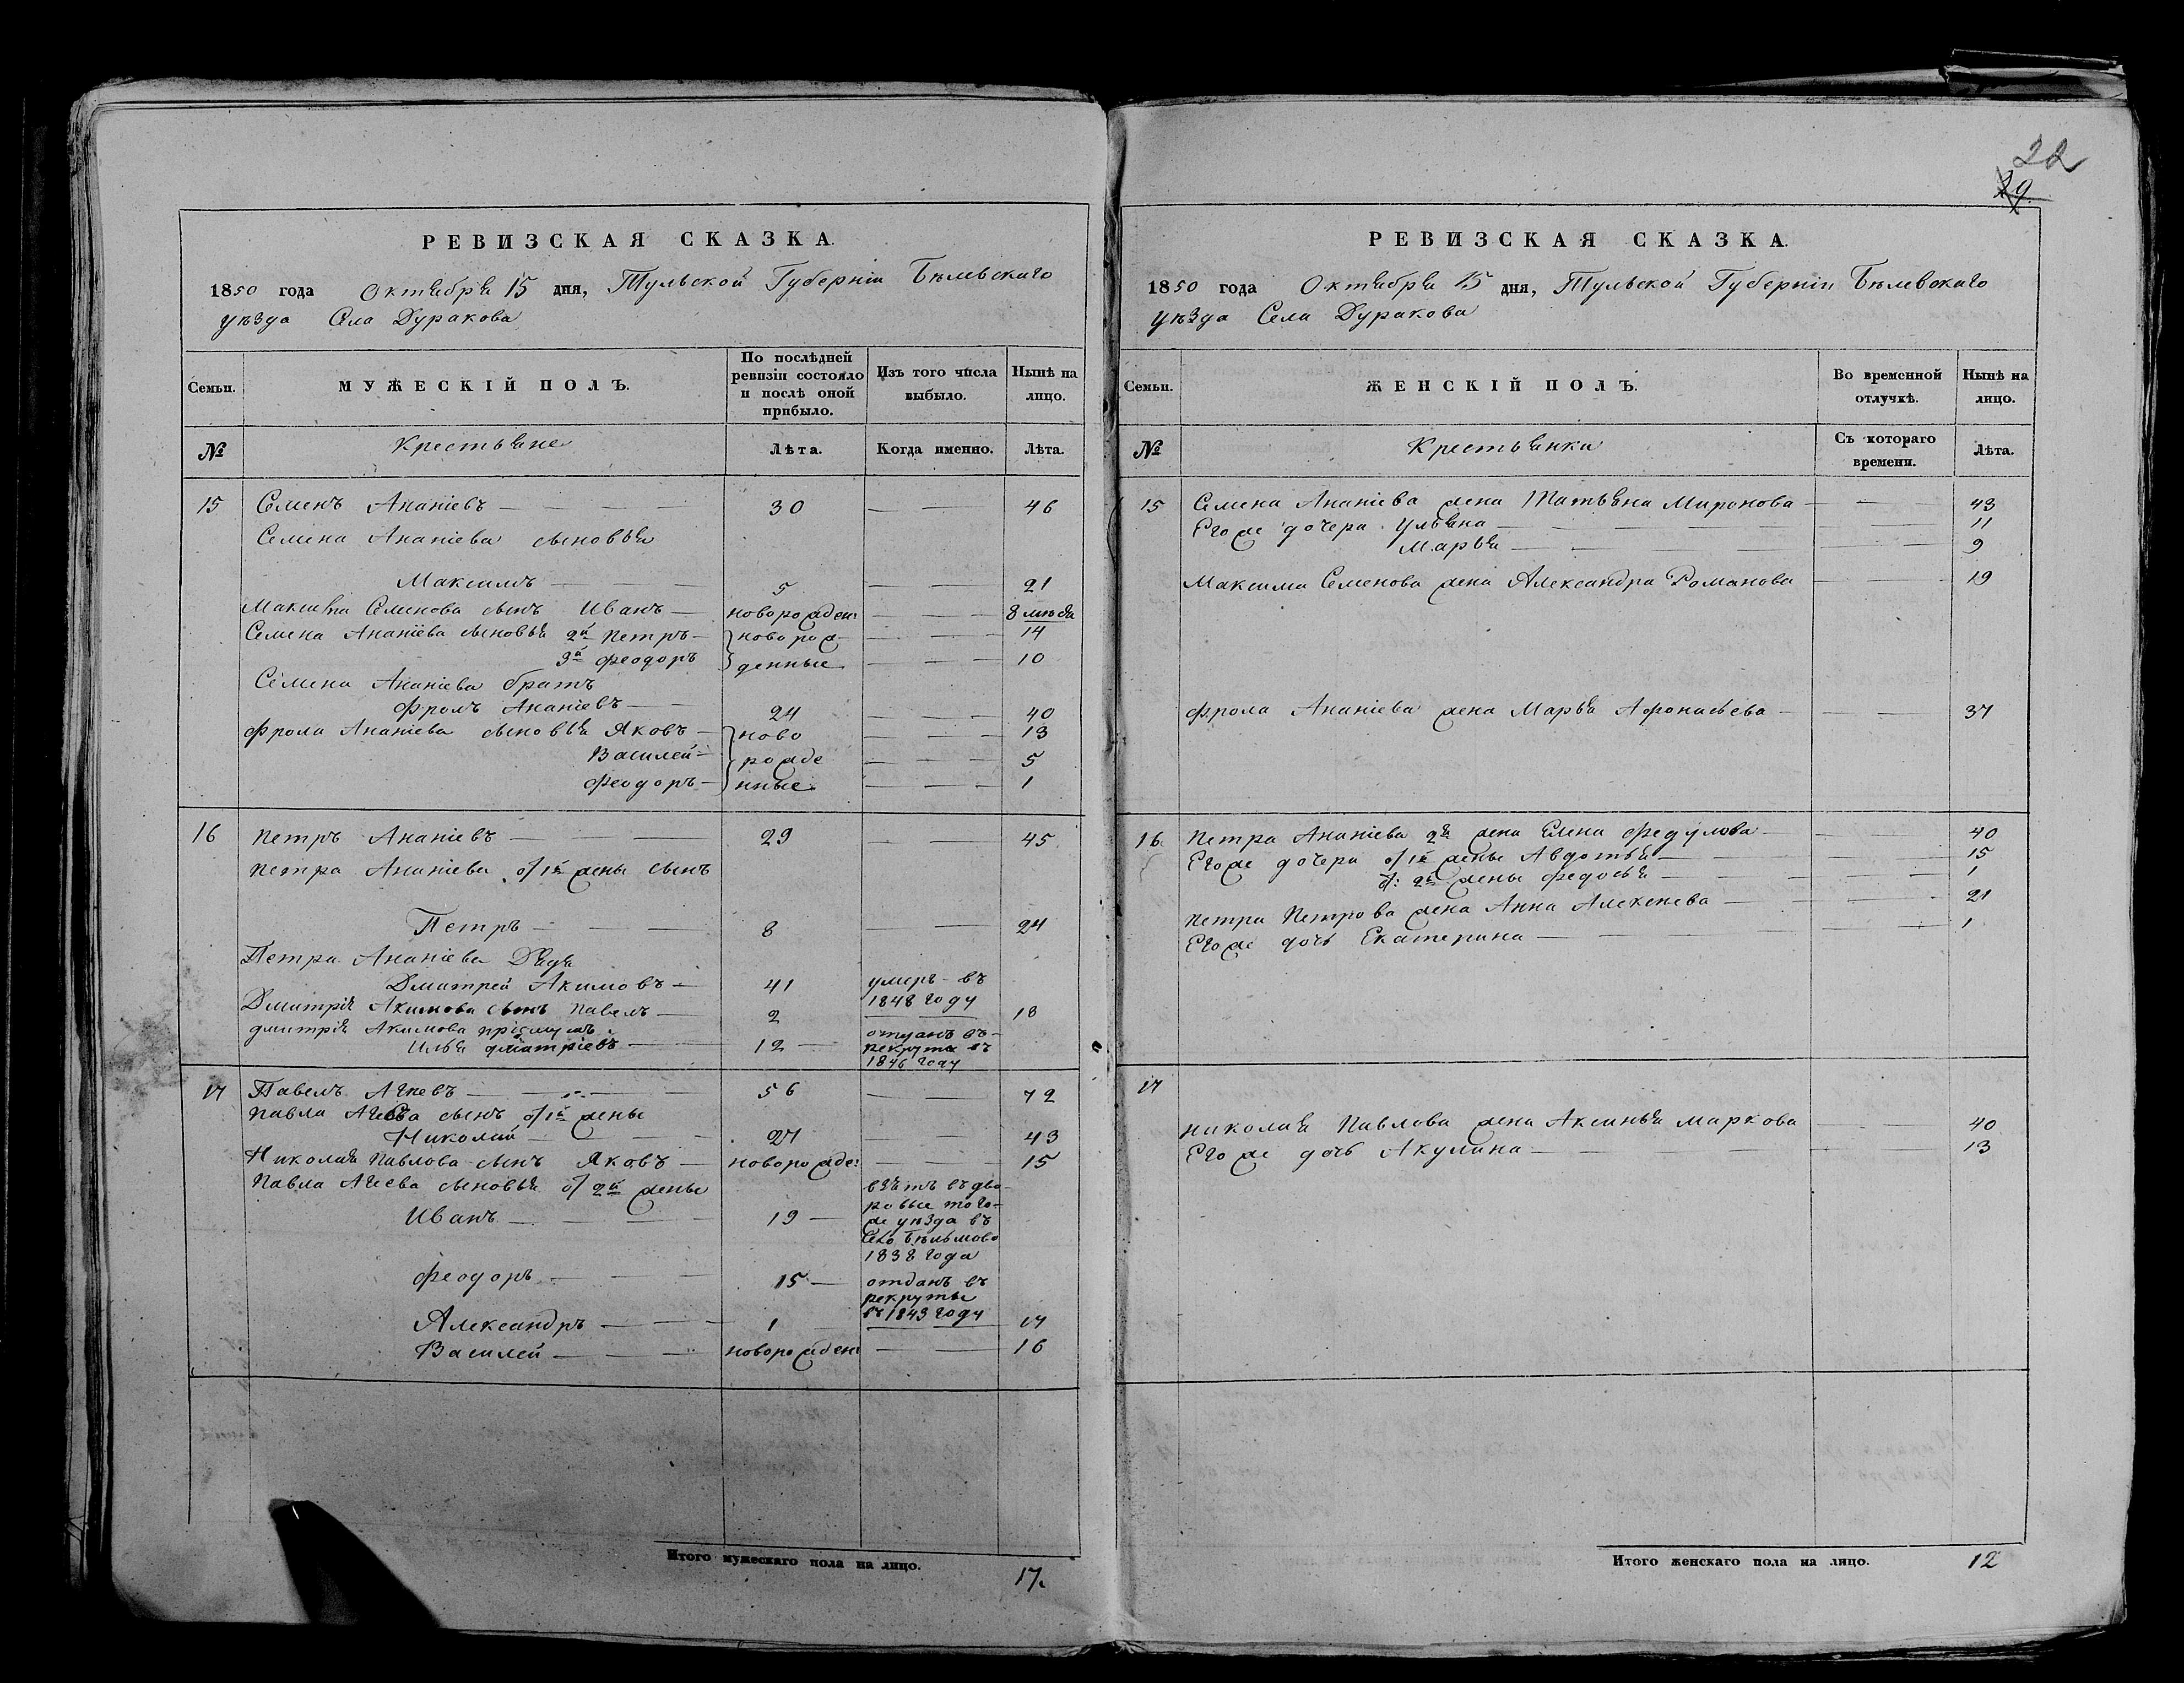 22
29.
РЕВИЗСКАЯ СКАЗКА.
1850 года Октября 15 дня, Тульской Губерніи Бѣлевскаго
уѣзда Села Дуракова
Семьи. МУЖЕСКІЙ ПОЛЪ. По послѣдней ревизіи состояло и послѣ оной прибыло. Изъ того числа выбыло. Нынѣ на лицо.
№ Крестьяне Лѣта. Когда именно. Лѣта.
15 Семенъ Ананіевъ 30 46
Семена Ананіева сыновья
Максимъ 5 21
Максима Семенова сынъ Иванъ новорожден: 8 мѣся
Семена Ананіева сыновья 2й Петръ новорож- 14
3й Феодоръ денные 10
Семена Ананіева братъ
Фролъ Ананіевъ 24 40
Фрола Ананіева сыновья Яковъ ново 13
Василей рожде 5
Феодоръ нные 1
16 Петръ Ананіевъ 29 45
Петра Ананіева о/ 1й жены сынъ
Петръ 8 24
Петра Ананіева Дядя
Дмитрей Акимовъ 41 умеръ въ 1848 году
Дмитрія Акимова сынъ Павелъ 2 18
Дмитрія Акимова пріемышъ
Илья Дмитріевъ 12 отданъ въ рекруты въ 1846 году
17 Павелъ Агѣевъ 56 72
Павла Агѣева сынъ о/ 1й жены
Николай 27 43
Николая Павлова сынъ Яковъ новорожде: 15
Павла Агеева сыновья о/ 2й жены
Иванъ 19 взятъ въ дво-
ровые того-
же уѣзда въ
Село
1838 года
Феодоръ 15 отданъ въ
рекруты
въ 1843 году
Александръ 1 17
Василей новорожден: 16
Итого мужескаго пола на лицо. 17.
РЕВИЗСКАЯ СКАЗКА.
1850 года Октября 15 дня, Тульской Губерніи Бѣлевскаго
уѣзда Села Дуракова
Семьи. ЖЕНСКІЙ ПОЛЪ. Во временной отлучкѣ. Нынѣ на лицо.
№ Крестьянки Съ котораго времени. Лѣта.
15 Семена Ананіева жена Татьяна Миронова 43
Егоже дочери Ульяна 11
Марья 9
Максима Семенова жена Александра Романова 19
Фрола Ананіева жена Марья Афонасьева 37
16. Петра Ананіева 2я жена Елена Федулова 40
Егоже дочери о/ 1й жены Авдотья 15
о/: 2й жены Федосья 1
Петра Петрова жена Анна Алексѣева 21
Егоже дочь Екатерина 1
17
Николая Павлова жена Аксинья Маркова 40
Егоже дочь Акулина 13
Итого женскаго пола на лицо. 12